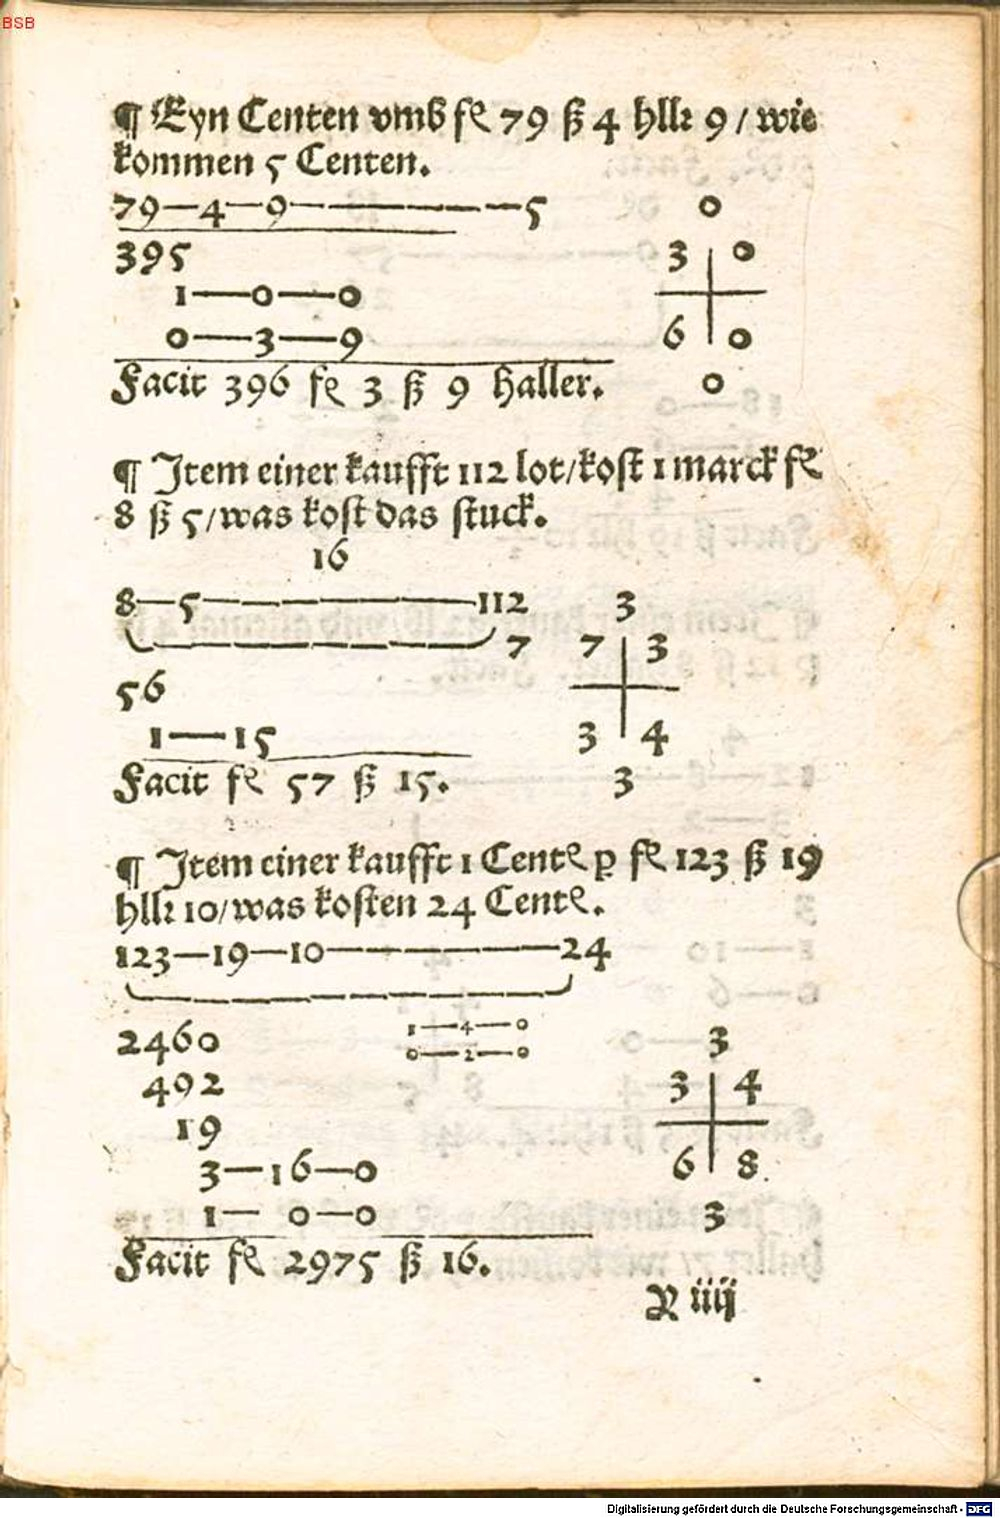 BSB
¶ Eyn Centen vmb fl 79 ß 4 hllr 9 / wie
kommen 5 Centen.
79—4—9———————5
395
1——0——0
0——3——9
Facit 396 fl 3 ß 9 haller.
0
3 0
6 0
0
¶ Jtem einer kaufft 112 lot/kost 1 marck fl
8 ß 5/was kost das stuck.
16
8—5———————112
7
56
1——15
Facit fl 57 ß 15.
3
7 3
3 4
3
¶ Jtem einer kaufft 1 Centẽ p fl 123 ß 19
hllr 10/was kosten 24 Centẽ.
123—19—10———————24
2460
492
19
3—16—0
1—0—0
1—4—0
0—2—0
Facit fl 2975 ß 16.
3
3 4
6 8
3
R iiij
Digitalisierung gefördert durch die Deutsche Forschungsgemeinschaft - DFG